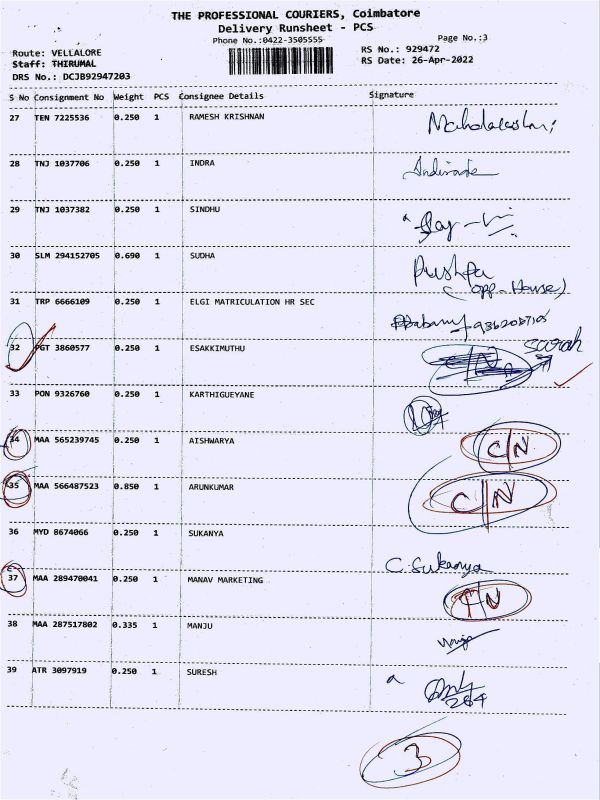 THE PROFESSIONAL COURIERS, Coimbatore
Delivery Runsheet - PCS
Phone No.:0422-3505555 Page No.:3
Route: VELLALORE RS No.: 929472
Staff: THIRUMAL RS Date: 26-Apr-2022
DRS No.: DCJB92947203
S No Consignment No Weight PCS Consignee Details Signature
27 TEN 7225536 0.250 1 RAMESH KRISHNAN
28 TNJ 1037706 0.250 1 INDRA
29 TNJ 1037382 0.250 1 SINDHU
30 SLM 294152705 0.690 1 SUDHA Pushpa
(opp-House)
31 TRP 6666109 0.250 1 ELGI MATRICULATION HR SEC
32 PGT 3860577 0.250 1 ESAKKIMUTHU C/N Sarah
33 PON 9326760 0.250 1 KARTHIGUEYANE
34 MAA 565239745 0.250 1 AISHWARYA C/N
35 MAA 566487523 0.850 1 ARUNKUMAR C/N
36 MYD 8674066 0.250 1 SUKANYA C. Sukanya
37 MAA 289470041 0.250 1 MANAV MARKETING C/N
38 MAA 287517802 0.335 1 MANJU
39 ATR 3097919 0.250 1 SURESH
3